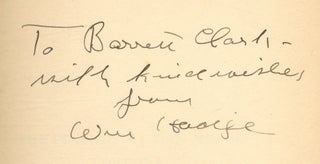 To Barrett Clark -
with kind wishes
from
Wm Hodge